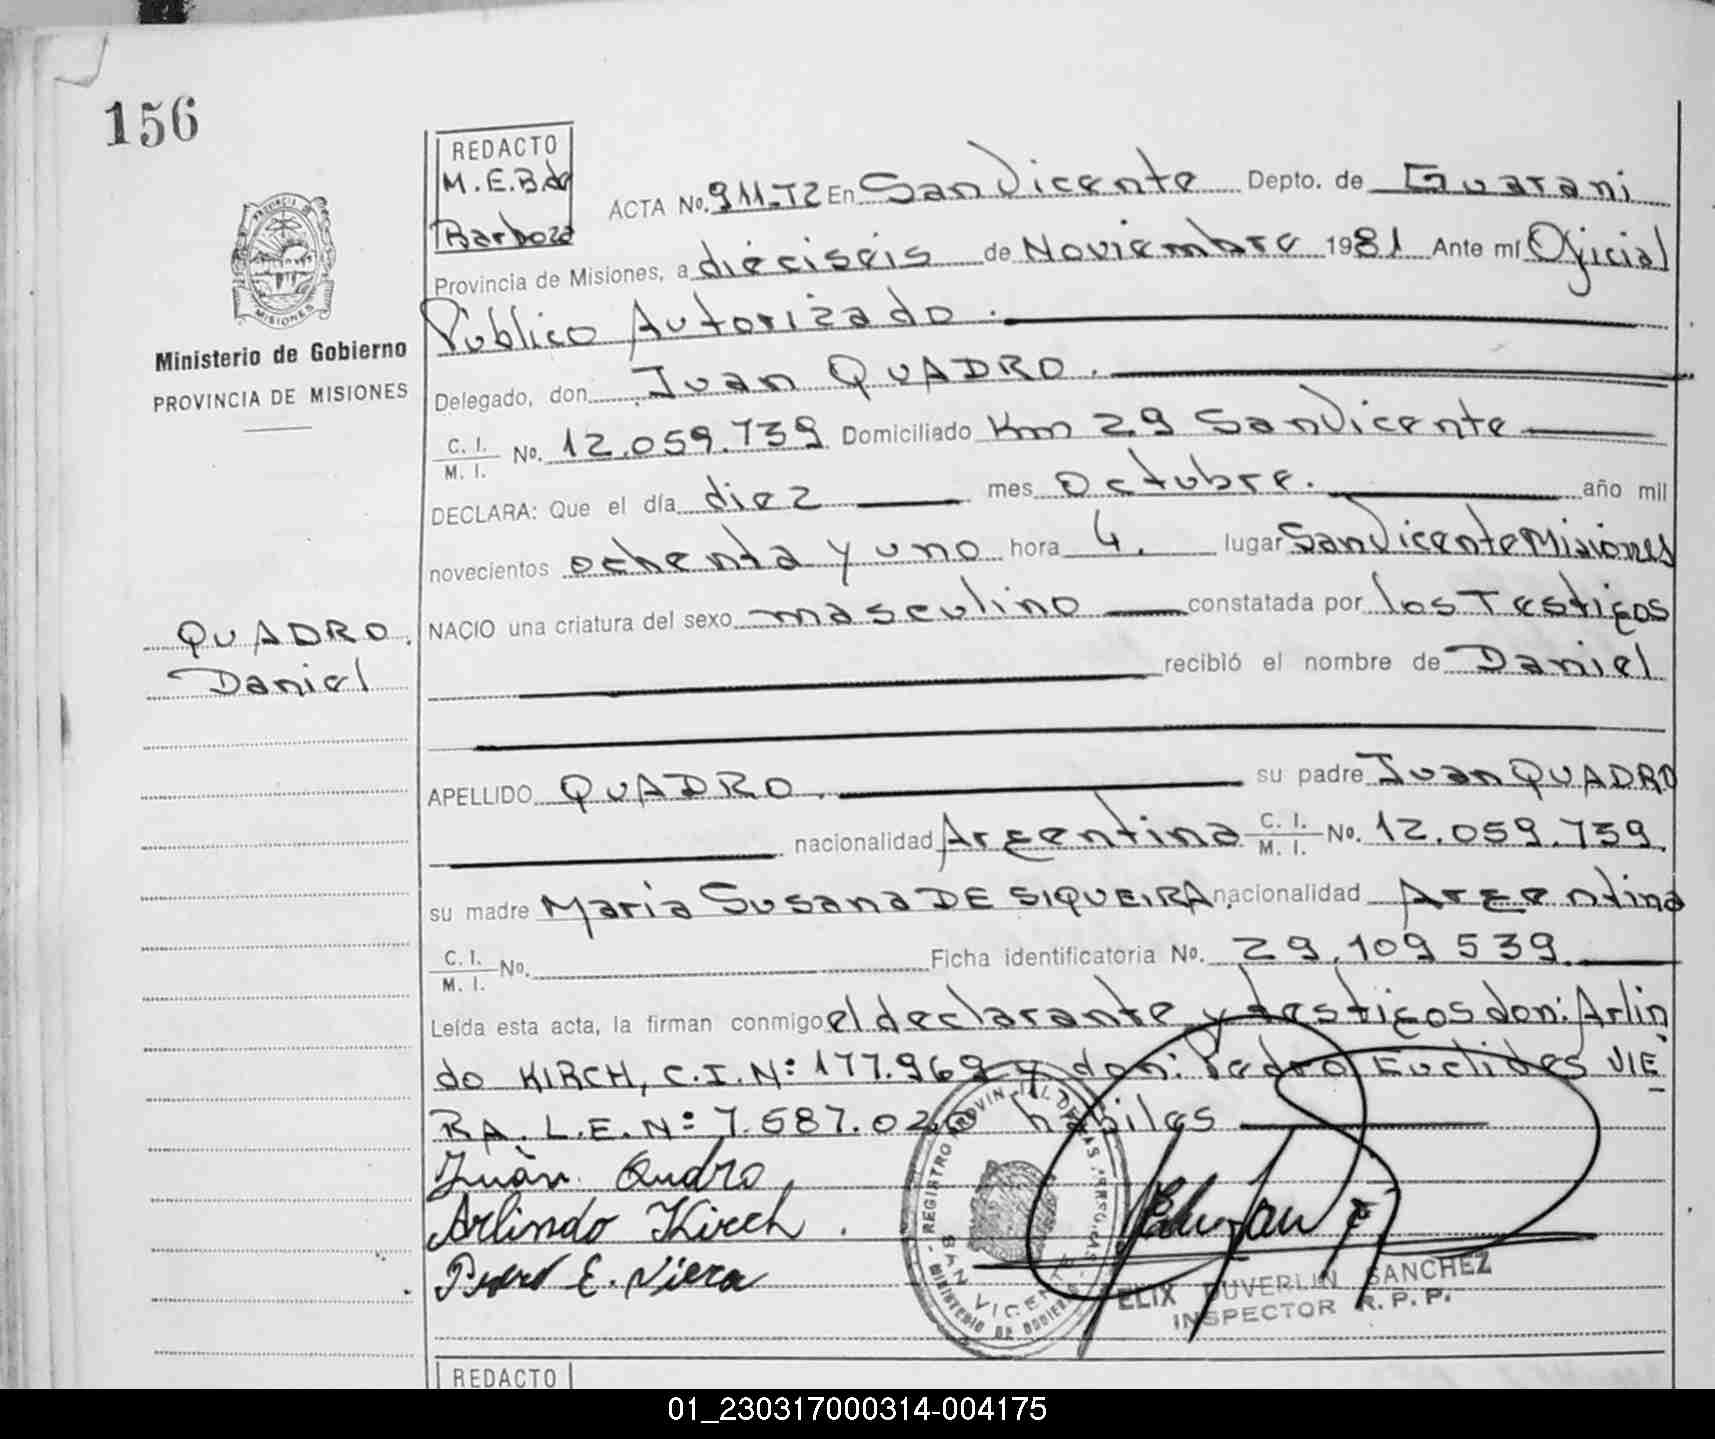 156
REDACTO
M.E.B de
Barboza
ACTA No. 911-T2 En San Vicente Depto. de Guarani
Provincia de Misiones, a dieciséis de Noviembre 1981 Ante mí Oficial
Público Autorizado.
Delegado, don Juan QUADRO.
C. I. / M. I. No. 12.059.739 Domiciliado Km 29 San Vicente
DECLARA: Que el día diez mes octubre. año mil
novecientos ochenta y uno hora 4. lugar San Vicente Misiones
NACIO una criatura del sexo masculino constatada por los Testigos
recibió el nombre de Daniel
APELLIDO QUADRO. su padre Juan QUADRO
nacionalidad Argentina C. I. / M. I. No. 12.059.739.
su madre Maria Susana DE SIQUEIRA. nacionalidad Argentina
C. I. / M. I. No. Ficha identificatoria No. 29.109539.
Leída esta acta, la firman conmigo el declarante y testigos don: Arlin
do KIRCH, C.I.N: 177.969 y don: Pedro Euclides VIE
RA. L.E.N: 7.687.020 habiles
Juàn Qudro
Arlindo Kirch.
Pedro E. Viera
ELIX DUVERLIN SANCHEZ
INSPECTOR R. P. P.
REGISTRO PROVINCIAL DE LAS PERSONAS
SAN VICENTE
MINISTERIO DE GOBIERNO
PROVINCIA DE
MISIONES
Ministerio de Gobierno
PROVINCIA DE MISIONES
QUADRO.
Daniel
REDACTO
01_230317000314-004175